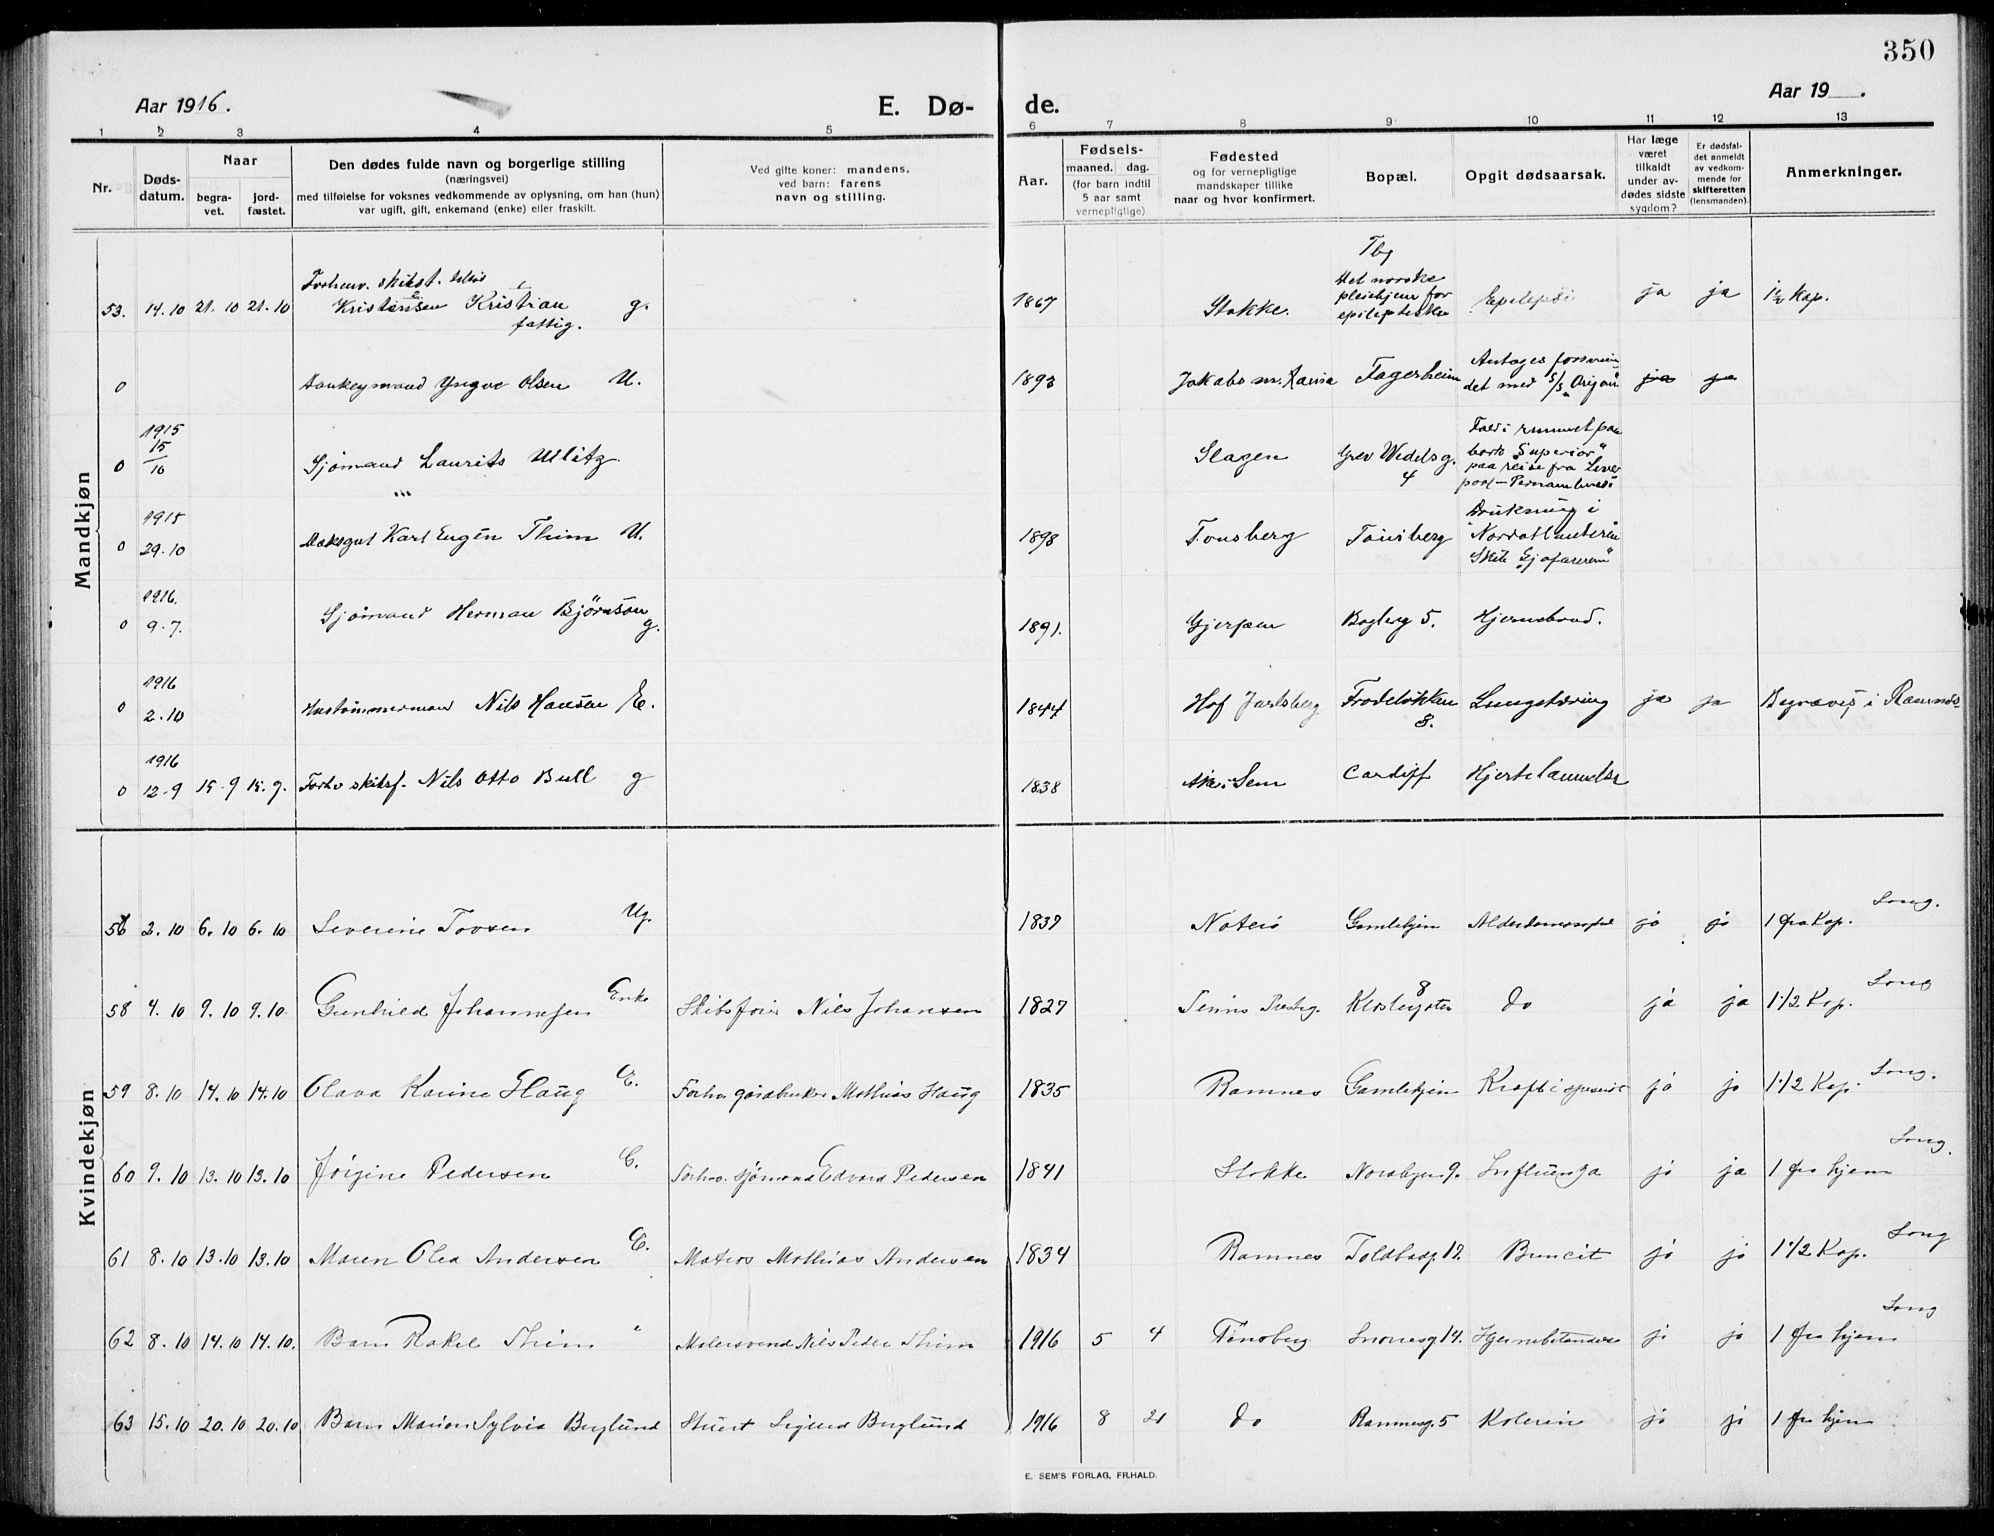 350
Aar 1916.
E. Dø-
de.
Aar 19 .
1 2 3 4 5 6 7 8 9 10 11 12 13
Nr.
Døds-
datum.
Naar
begra-
vet.
jord-
fæstet.
Den dødes fulde navn og borgerlige stilling
(næringsvei)
med tilføielse for voksnes vedkommende av oplysning, om han (hun)
var ugift, gift, enkemand (enke) eller fraskilt.
Ved gifte koner: mandens,
ved barn: farens
navn og stilling.
Aar.
Fødsels-
maaned. dag.
(for barn indtil
5 aar samt
vernepligtige)
Fødested
og for vernepligtige
mandskaper tillike
naar og hvor konfirmert.
Bopæl.
Opgit dødsaarsak.
Har læge
været
tilkaldt
under av-
dødes sidste
sygdom?
Er dødsfal-
det anmeldt
av vedkom-
mende for
skifteretten
(lensmanden).
Anmerkninger.
Mandkjøn
53. 14.10 21.10 21.10 Kristensen Kristian fattig. g. 1867 Stokke. Tbg Det norske pleiehjem for epileptiske Epilepsi ja ja 1/2 Kap.
0 Donkeymand Yngve Olsen U. 1893 Fagerheim Antages forsvun- det med S/S ja ja
0 1915 15/10 Sjømand Laurits Ulitz Slagen Grev Wedelsg. 4 Fald i rummet paa bark "Superior" paa reise fra Liver pool - Pernambuco
0 1915 29.10 Dæksgut Karl Eugén Thim U. 1898 Tønsberg Tønsberg Drukning i Nordatlanteren
0 1916. 9.7. Sjømand Herman Bjørnson g. 1891. Gjerpen Bagberg 5. Hjerneblød.
0 1916 2.10 Hustømmermand Nils Hansen E. 1844 Hof Jarlsberg Frodeløkken 8. Lungetæring ja ja Begraves i Ramnes
0 1916 12.9 15.9 15.9. Forhv skibsf. Nils Otto Bull g 1838 Sem Cardiff Hjertelammelse
Kvindekjøn
2.10 6.10 6.10 Severine Tovsen Ug. 1839 Nøterø Gamlehjem ja ja 1 fra Kap. Sang.
58 4.10 9.10 9.10. Gunhild Johannesen Enke Skibsfører Nils Johansen 1827 Do ja ja 1 1/2 Kap. Sang
59 8.10 14.10 14.10 Olava Karine Haug E. Forhv. gårdbruker Mathias Haug 1835 Ramnes Gamlehjem Kræft i spiserør ja ja 1 1/2 Kap. Sang.
60 9.10 13.10 13.10 Jørgine Pedersen E. Forhv. sjømand Edvard Pedersen 1841 Stokke Nordbyen 9. Influenza ja ja 1 fra hjem Sang.
61 8.10 13.10 13.10 Maren Olea Andersen E. Matros Mathias Andersen 1834 Ramnes Toldbodg. 12. ja ja 1 1/2 Kap. Sang
62 8.10 14.10 14.10. Barn Rakel Thim " Malersvend Nils Peder Thim 1916 5 4 Tønsberg 14. Hjernebetændelse ja ja 1 fra hjem Sang
63 15.10 20.10 20.10 Barn Marion Sylvia Berglund Stuert Sigurd Berglund 1916 8 21 Do Ramnesg. 5 Kolerin ja ja 1 fra hjem
E. SEM'S FORLAG, FR.HALD.